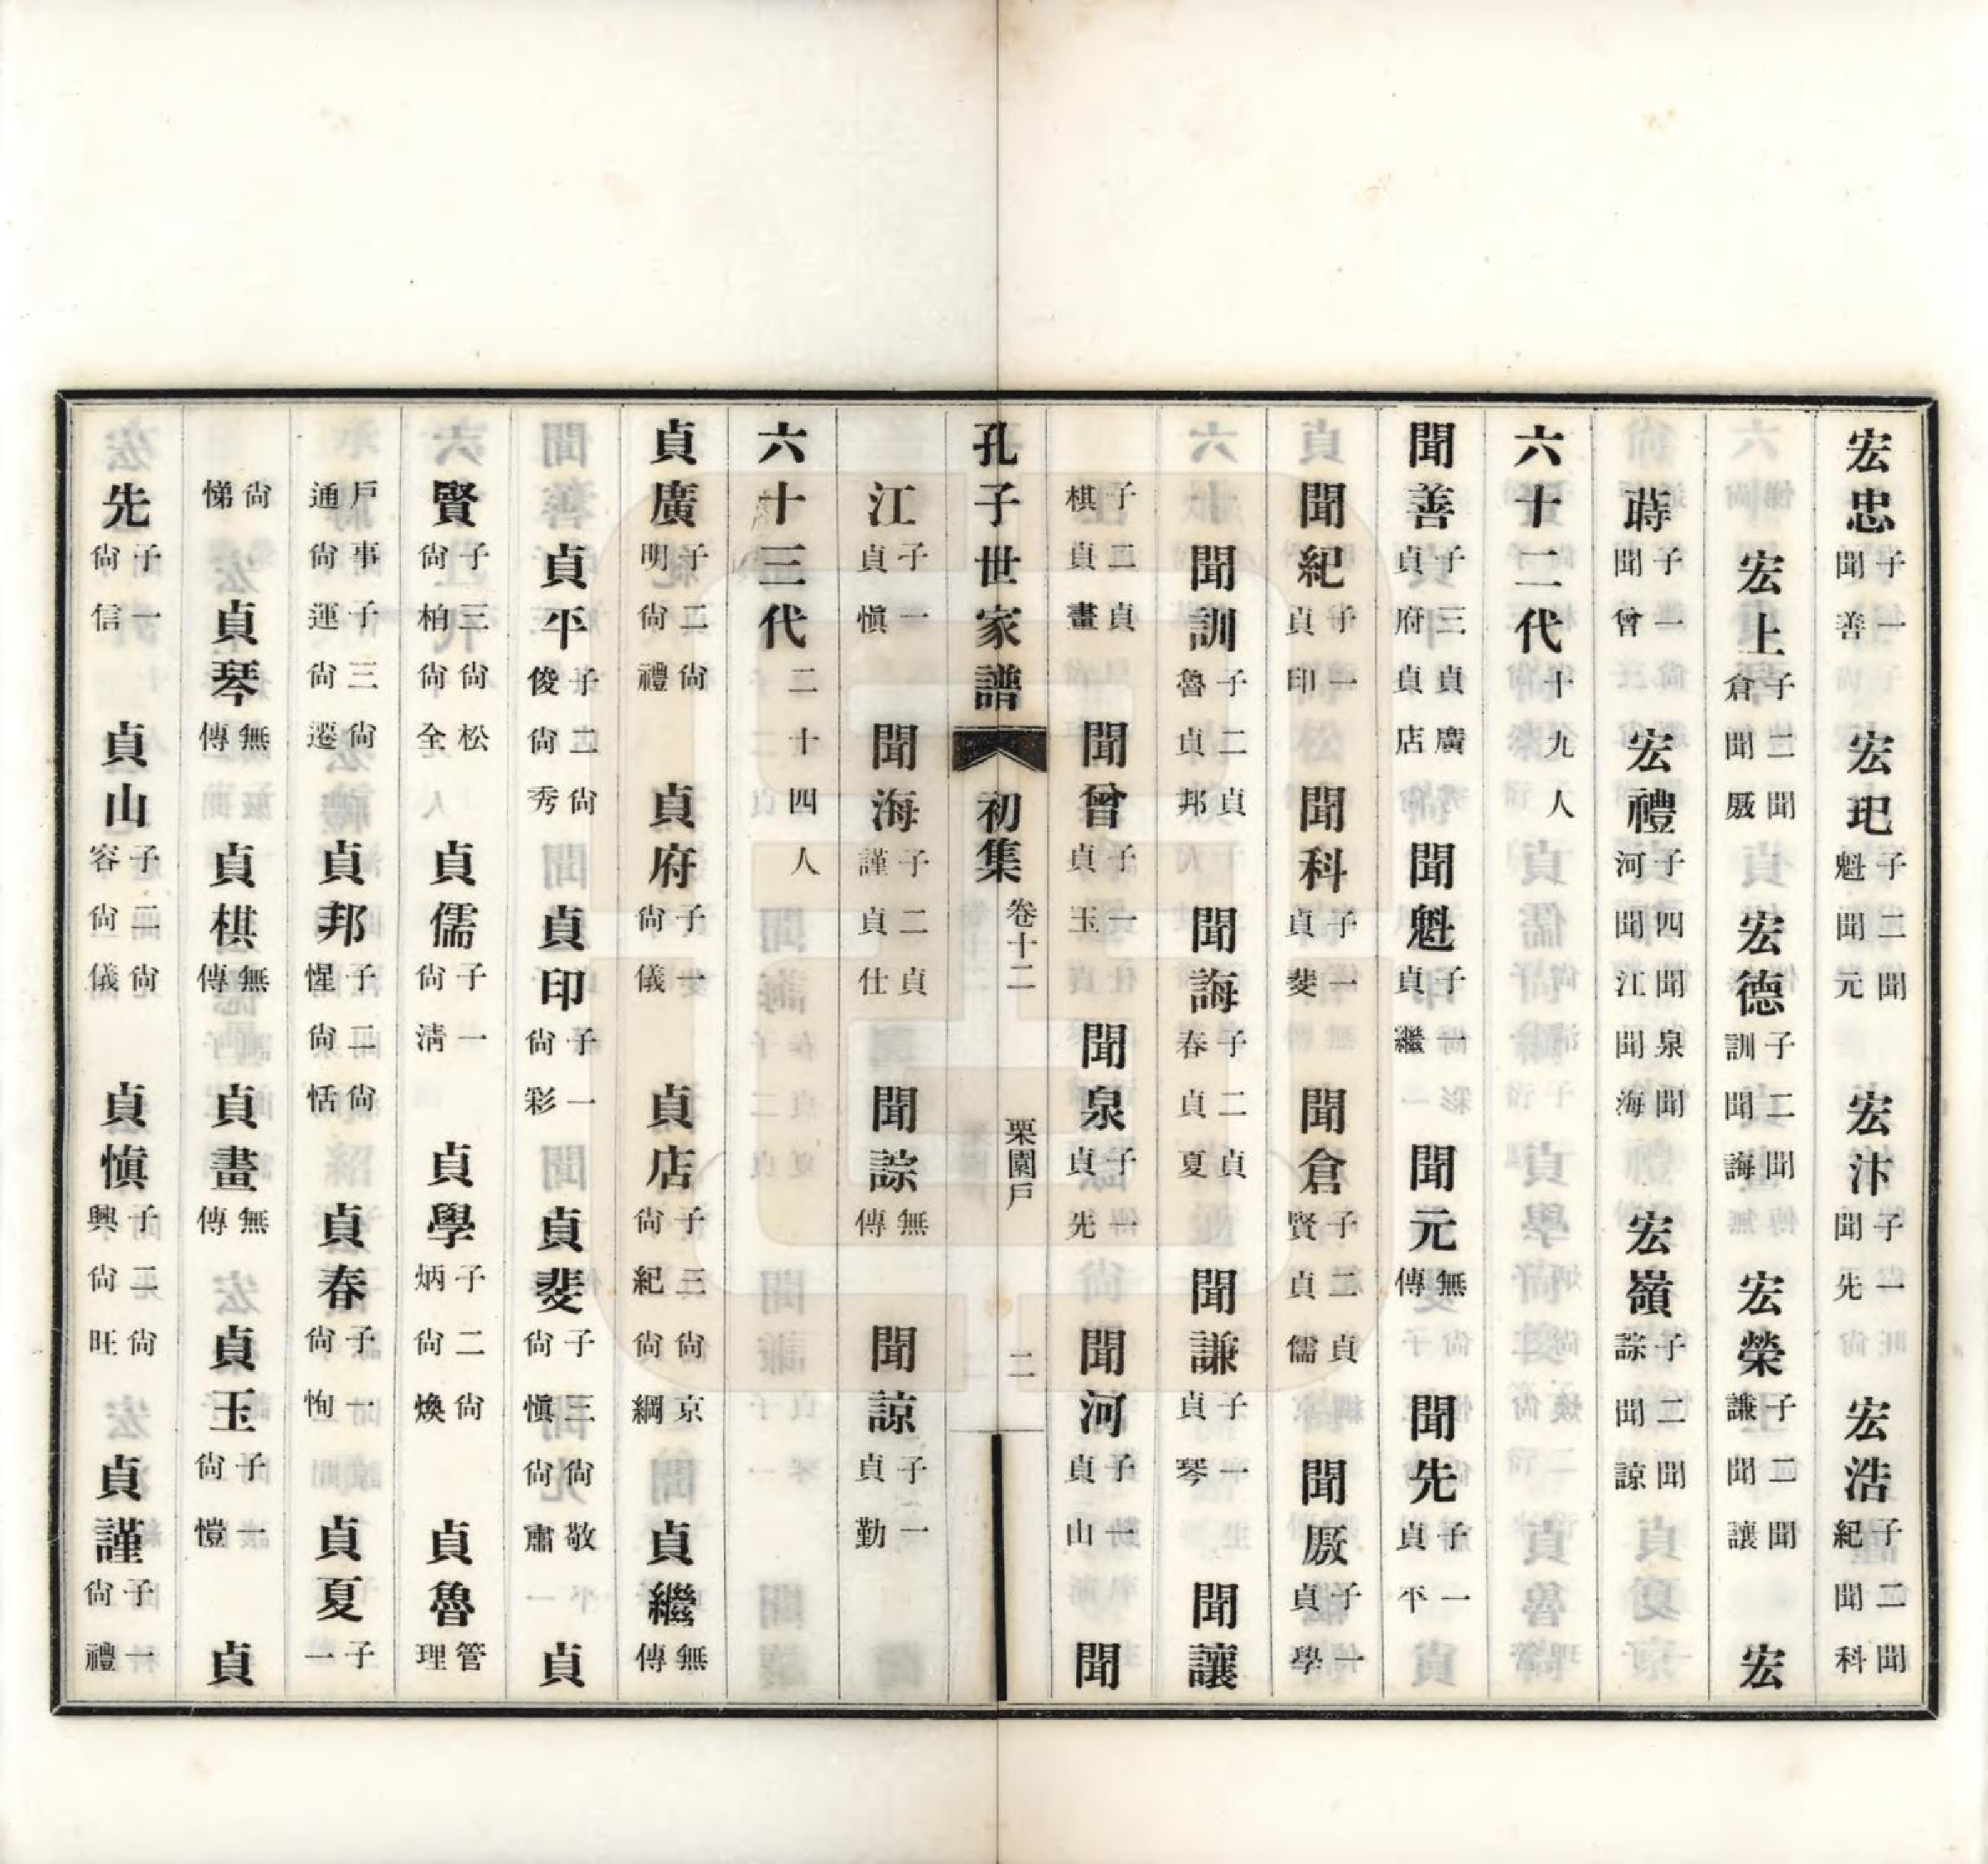 宏忠子一聞善 宏玘子二聞魁聞元 宏汴子一聞先 宏浩子二聞紀聞科
宏上子二聞倉聞厫 宏德子二聞訓聞誨 宏榮子二聞謙聞讓 宏
蒔子一聞曾 宏禮子四聞泉聞河聞江聞海 宏嶺子二聞誴聞諒
六十二代十九人
聞善子三貞廣貞府貞店 聞魁子一貞繼 聞元無傳 聞先子一貞平
聞紀子一貞印 聞科子一貞斐 聞倉子二貞賢貞儒 聞厫子一貞學
聞訓子二貞魯貞邦 聞誨子二貞春貞夏 聞謙子一貞琴 聞讓
子二貞棋貞畫 聞曾子一貞玉 聞泉子一貞先 聞河子一貞山 聞
孔子世家譜 初集 卷十二 栗園戶 二
江子一貞愼 聞海子二貞謹貞仕 聞誴無傳 聞諒子一貞勤
六十三代二十四人
貞廣子二尙明尙禮 貞府子一尙儀 貞店子三尙京尙紀尙綱 貞繼無傳
貞平子二尙俊尙秀 貞印子一尙彩 貞斐子三尙敬尙愼尙肅 貞
賢子三尙松尙柏尙全 貞儒子一尙淸 貞學子二尙炳尙煥 貞魯管理
戶事子三尙通尙運尙遷 貞邦子二尙惺尙恬 貞春子一尙恂 貞夏子一
尙悌 貞琴無傳 貞棋無傳 貞畫無傳 貞玉子一尙愷 貞
先子一尙信 貞山子二尙容尙儀 貞愼子二尙興尙旺 貞謹子一尙禮